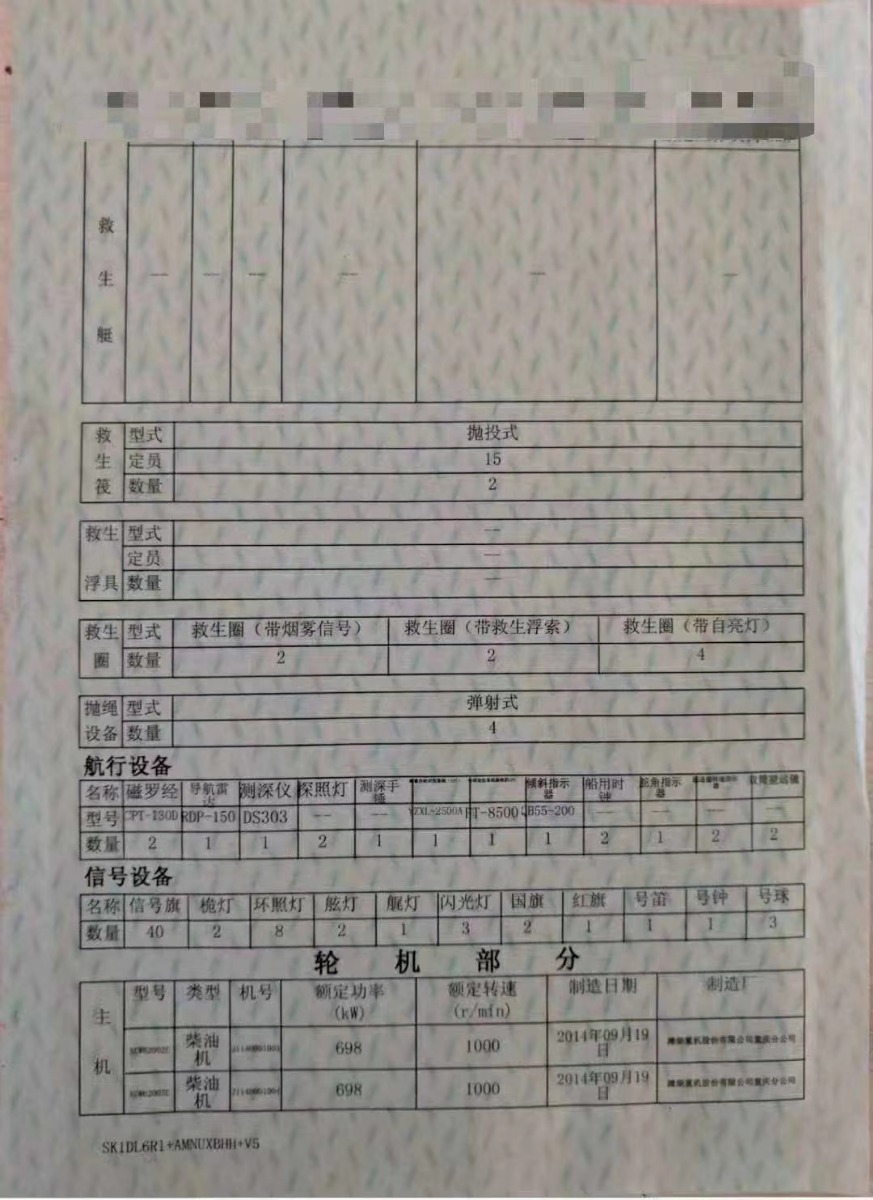 救生艇 — — — — — —
救生筏 型式 抛投式
定员 15
数量 2
救生浮具 型式 —
定员 —
数量 —
救生圈 型式 救生圈（带烟雾信号） 救生圈（带救生浮索） 救生圈（带自亮灯）
数量 2 2 4
抛绳设备 型式 弹射式
数量 4
航行设备
名称 磁罗经 导航雷达 测深仪 探照灯 测深手锤 倾斜指示器 船用时钟 舵角指示器
型号 CPT-130D RDP-150 DS303 — — FT-8500 — — — —
数量 2 1 1 2 1 1 1 1 2 1 2 2
信号设备
名称 信号旗 桅灯 环照灯 舷灯 艉灯 闪光灯 国旗 红旗 号笛 号钟 号球
数量 40 2 8 2 1 3 2 1 1 1 3
轮机部分
主机 型号 类型 机号 额定功率(kW) 额定转速(r/min) 制造日期 制造厂
柴油机 698 1000 2014年09月19日 潍柴重机股份有限公司重庆分公司
柴油机 698 1000 2014年09月19日 潍柴重机股份有限公司重庆分公司
SK1DL6R1+AMNUXBHH+V5